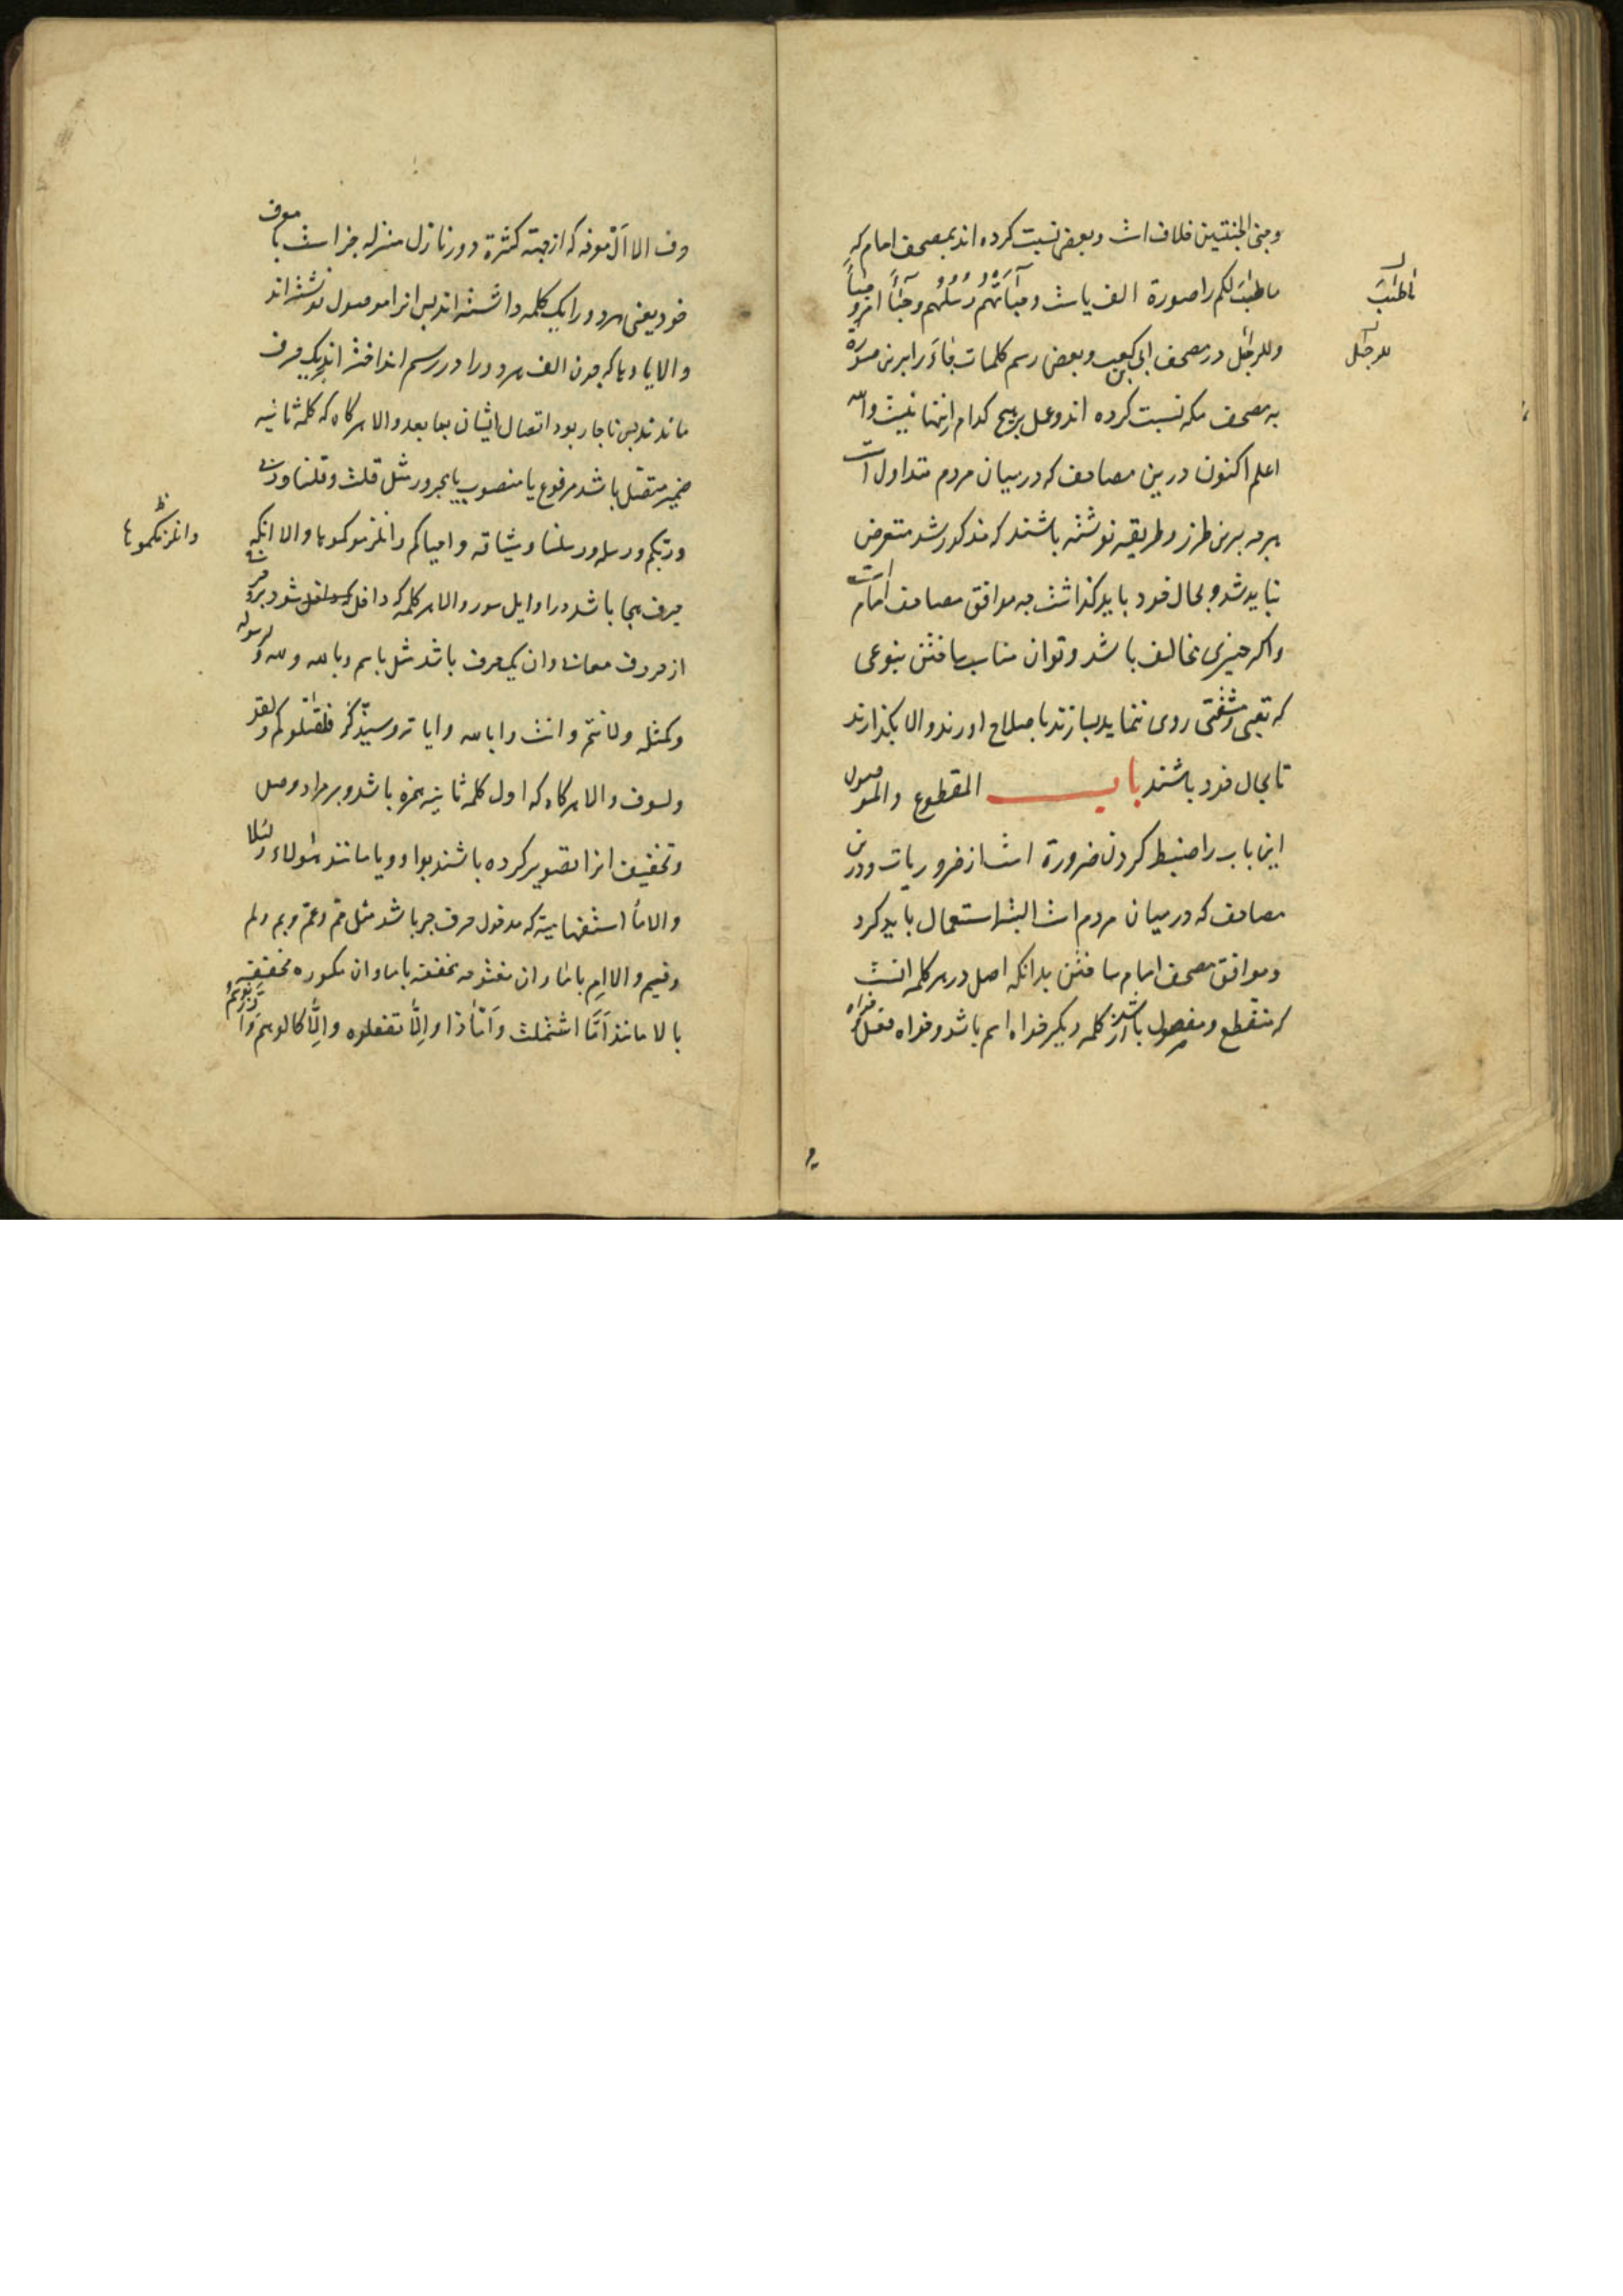 وجنی الجنتین خلاف است وبعض نسبت کرده اند بمصحف امام که
ما طیب لکم را صورة الف یاست وجیاتهم رسلهم وجیأ امر
وللرجیل در مصحف ابی بن کعب وبعض رسم کلمات جاء را برین صورة
به مصحف مکه نسبت کرده اند وعمل بر هیچ کدام ازینها نیست والله
اعلم اکنون درین مصاحف که در میان مردم متداول است
هرچه برین طرز وطریقه نوشته باشند که مذکور شد متعرض
نباید شد و بحال خود باید گذاشت چه موافق مصاحف امام است
واکر چیزی مخالف باشد وتوان مناسب ساختن بنوعی
که تعبی ومشقتی روی ننماید بسازند باصلاح اورند والا بگذارند
تا بحال خود باشند باب المقطوع والموصول
این باب را ضبط کردن ضرورة است از ضروریات ودرین
مصاحف که در میان مردم است البته استعمال باید کرد
وموافق مصحف امام ساختن بدانکه اصل در هر کلمه انست
که منقطع ومفصول باشد از کلمه دیگر خواه اسم باشد وخواه فعل وخواه
ما طیب
للرجیل
حرف الا ال معرفه که از جهة کثرة دور نازل منزله جزاست با معرف
خود یعنی هر دو را یک کلمه داشته اند پس انرا موصول نوشته اند
والا یا وها که چون الف هر دو را در رسم انداخته اند یک حرف
ماندند پس ناچار بود اتصال ایشان بما بعد والا هر کاه که کلمه ثانیه
ضمیر متصل باشد مرفوع یا منصوب یا مجرور مثل قلت وقلنا وربی
وربکم ورسله ورسلنا ومیثاقه واحیاکم وانلزمکموها والا انکه
حرف هجا باشد در اوایل سور والا هر کلمه که داخل شود برو حرفی
از حروف معانی وان یک حرف باشد مثل باسم وبالله ولله ولرسوله
وکمثله ولانتم وانت وابالله وایاته وسیذکر فلقتلوکم ولقد
ولسوف والا هر کاه که اول کلمه ثانیه همزه باشد وبر مراد وصل
وتخفیف انرا تصویر کرده باشند بواو ویا مانند هؤلاء ولئلا
والا ما استفهامیه که مدخول حرف جر باشد مثل مم وعم وبم ولم
وفیم والا ام با ما وان مفتوحه مخففه با ما وان مکسوره مخففه
با لا مانند اما اشتملت واماذا والا تفعلوه والا کالوهم
وانلزمکموها